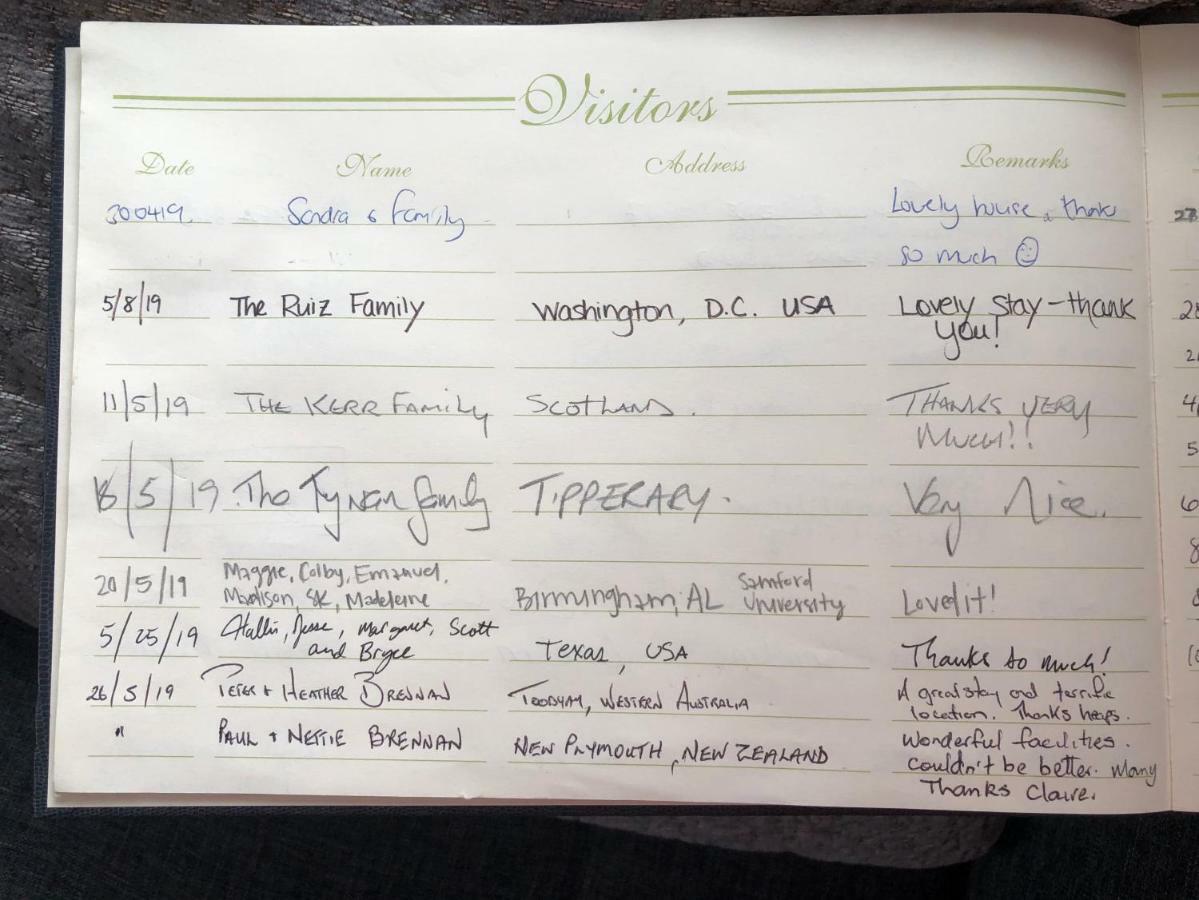 Visitors
Date Name Address Remarks
300419. Sandra & Family Lovely house, thanks
so much ☺
5/8/19 The Ruiz Family Washington, D.C. USA Lovely stay - thank
you!
11/5/19 THE KERR FAMILY SCOTLAND. THANKS VERY
MUCH!!
18/5/19 The Tynan family TIPPERARY. Very Nice.
Maggie, Colby, Emanuel, Samford
20/5/19 Madison, SK, Madeleine Birmingham, AL University Loved it!
5/25/19 Jesse, Margaret, Scott
and Bryce Texas, USA Thanks so much!
26/5/19 PETER + HEATHER BRENNAN TOODYAY, WESTERN AUSTRALIA A great stay and terrific
location. Thanks heaps.
" PAUL + NETTIE BRENNAN NEW PLYMOUTH, NEW ZEALAND Wonderful facilities.
Couldn't be better. Many
Thanks Claire.
27